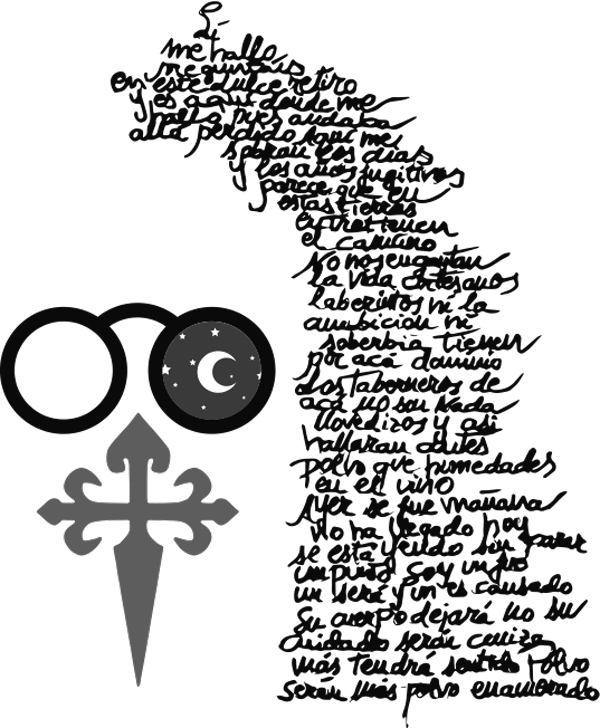 Si
me hallo
preguntáis
en este dulce retiro
y es aquí donde me
hallo pues andaba
allá perdido aquí me
sobran los días
y los años fugitivos
parece que en
estas tierras
entretienen
el camino
No nos engaytan
la vida cortesanos
laberintos ni la
ambicion ni
soberbia tienen
por acá dominio
Los taberneros de
acá no son nada
llovedizos y asi
hallaran antes
polvo que humedades
en el vino
Ayer se fue mañana
no ha llegado hoy
se está yendo sin parar
un punto soy un fue
un será y un es cansado
Su cuerpo dejará no su
cuidado serán ceniza
más tendrá sentido Polvo
serán más polvo enamorado